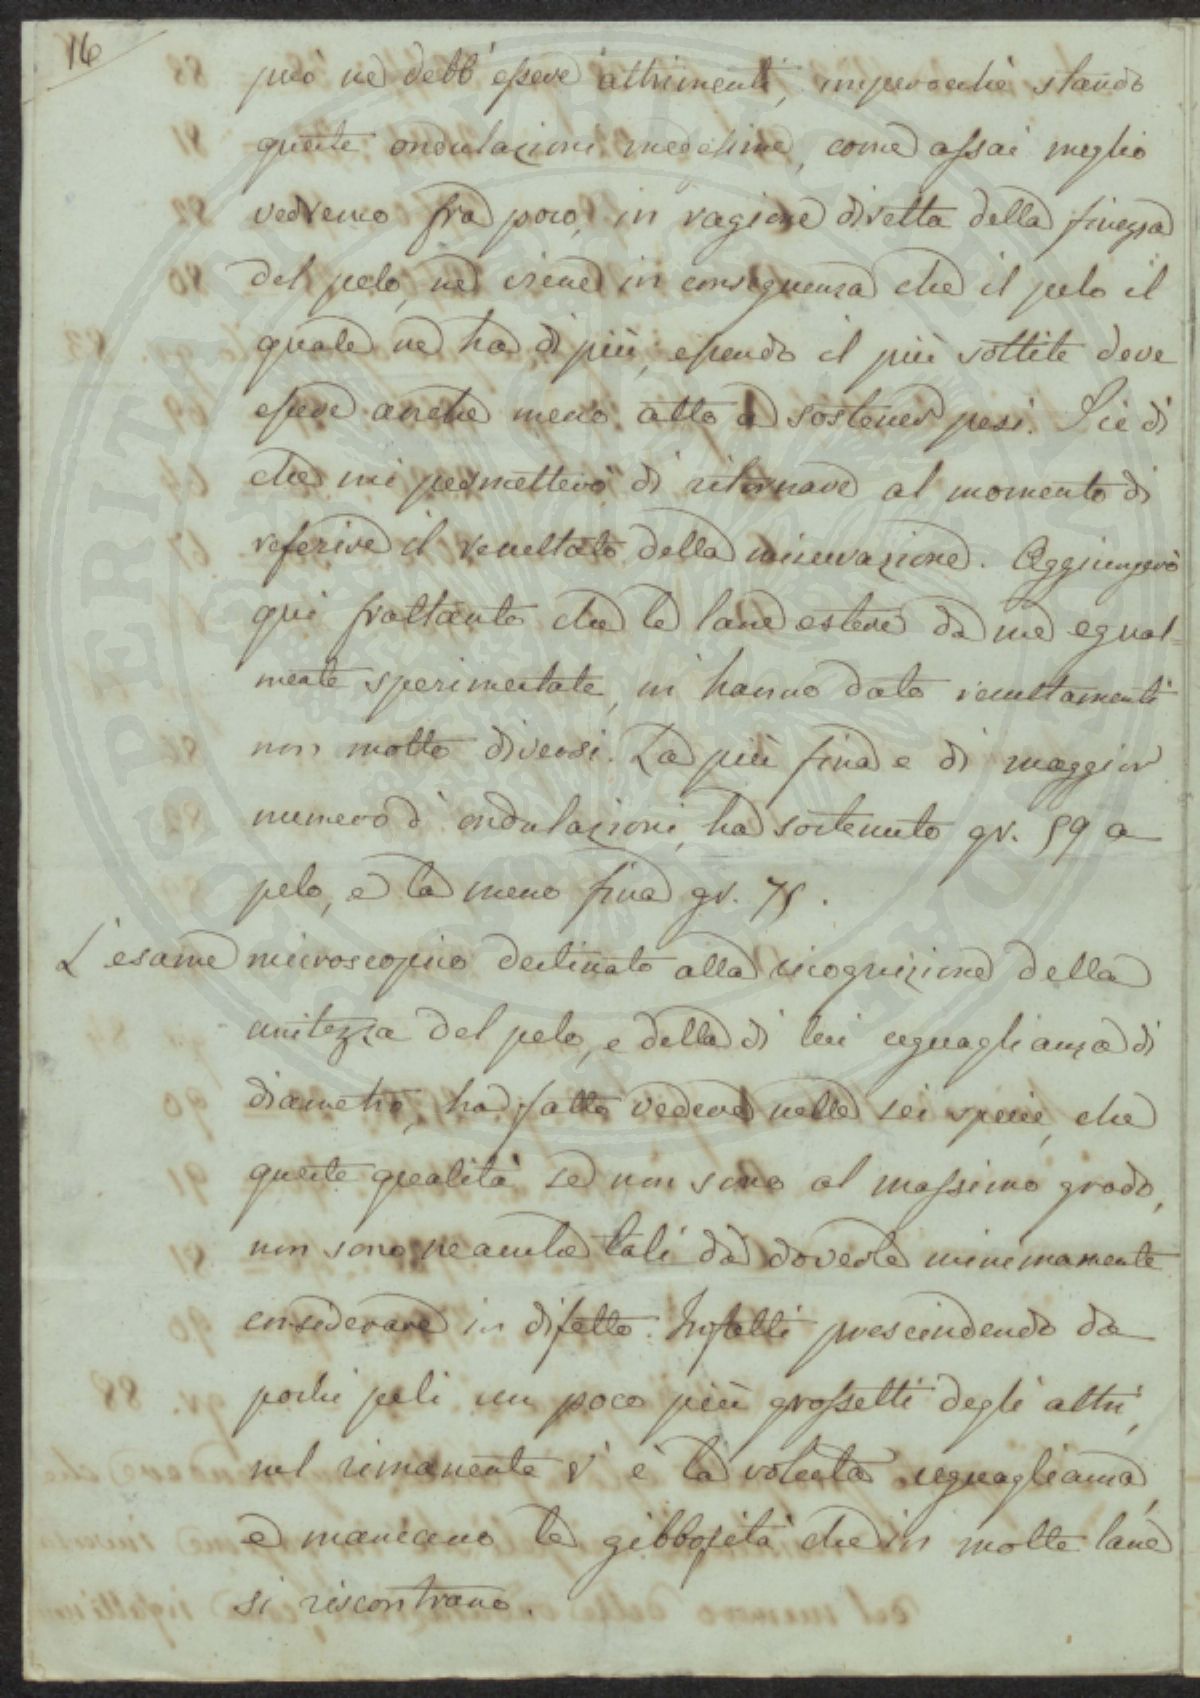 16
può ne debb' essere altrimenti, imperocchè stando
queste ondulazioni medesime, come assai meglio
vedremo fra poco, in ragione diretta della finezza
del pelo, ne viene in conseguenza che il pelo il
quale ne ha di più, essendo il più sottile deve
essere anche meno atto a sostener pesi. Ciò di
che mi permetterò di ritornare al momento di
referire il resultato della misurazione. Aggiungerò
quì frattanto che le lane estere da me egual-
mente sperimentate, mi hanno dato resultamenti
non molto diversi. La più fina e di maggior
numero d' ondulazioni, ha sostenuto gr. 59 a
pelo, e la meno fina gr. 75.
L' esame microscopico destinato alla ricognizione della
unitezza del pelo, e della di lui eguaglianza di
diametro, ha fatto vedere nelle sei specie, che
queste qualità se non sono al massimo grado,
non sono neanche tali da doverle minimamente
considerare in difetto. Infatti prescindendo da
pochi peli un poco più grossetti degli altri,
nel rimanente v' è la voluta uguaglianza,
e mancano le gibbosità che in molte lane
si riscontrano.